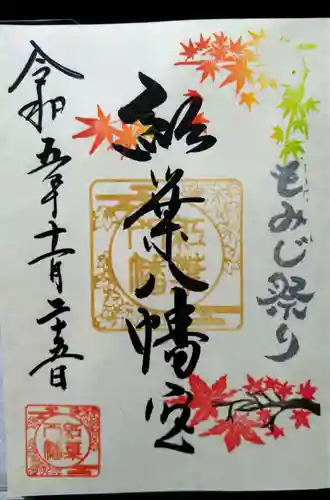 もみじ祭り
紅葉八幡宮
令和五年十一月二十五日
紅葉八幡
紅葉八幡